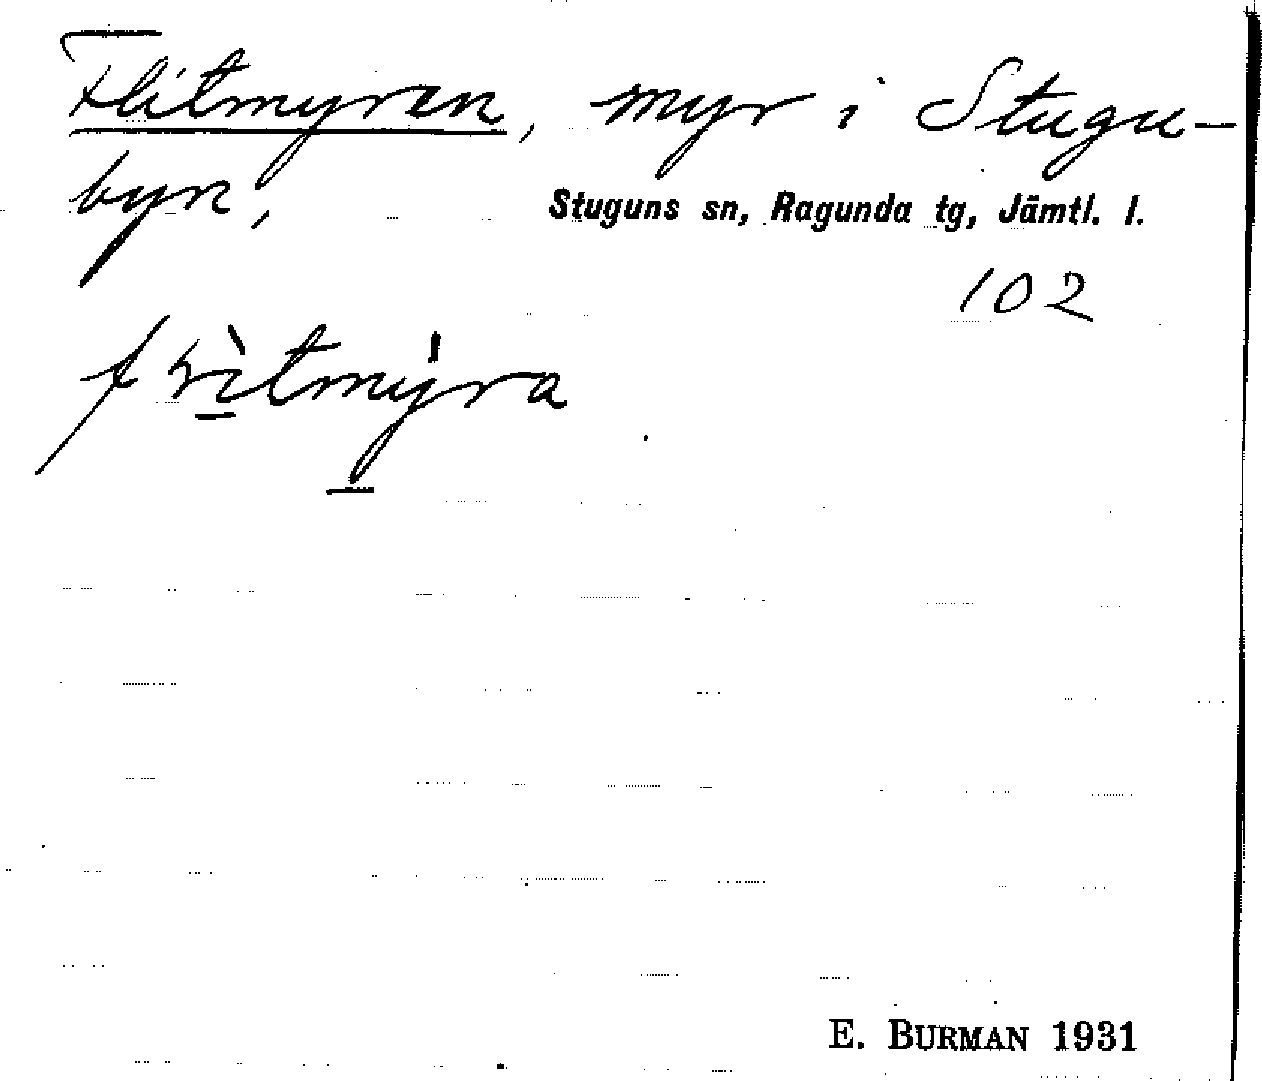 Flitmyren, myr i Stugu-
byn,
Stuguns sn, Ragunda tg, Jämtl. l.
102
E. BURMAN 1931